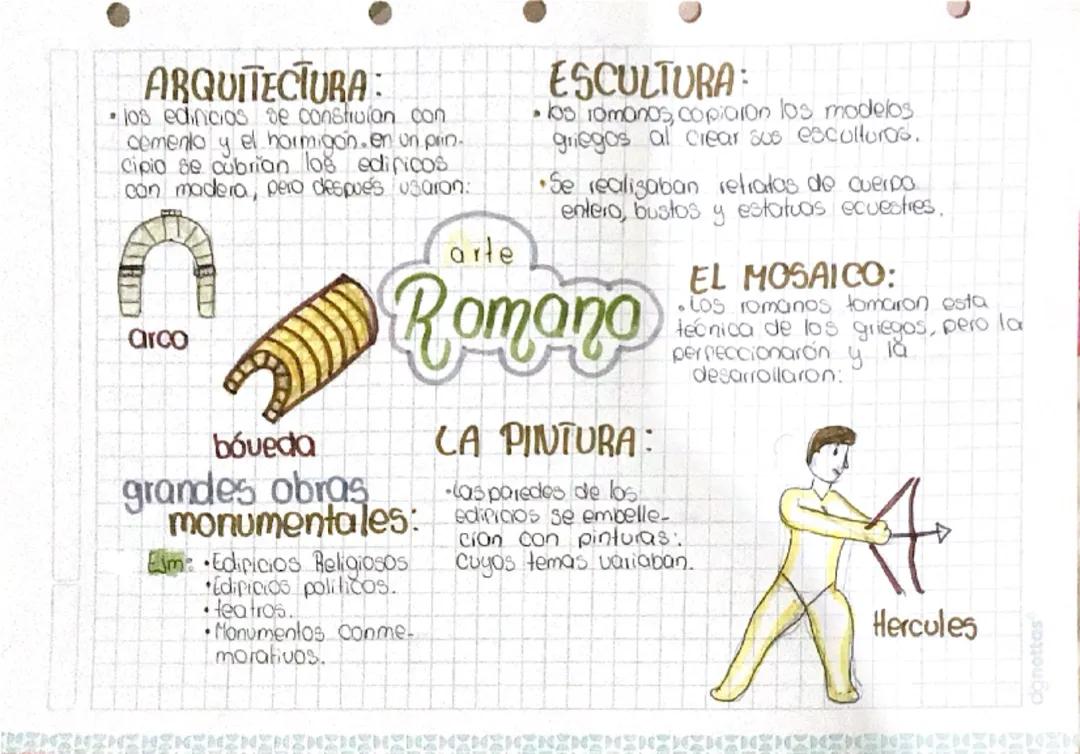 ARQUITECTURA:
• los edificios se construían con
cemento y el hormigón. en un prin-
cipio se cubrían los edificos
con madera, pero después usaron:
arco
bóveda
grandes obras
monumentales:
Ejm: • Edificios Religiosos
• Edificios políticos.
• teatros.
• Monumentos conme-
morativos.
arte
Romano
ESCULTURA:
• los romanos, copiaron los modelos
griegos al crear sus esculturas.
• Se realizaban retratos de cuerpo
entero, bustos y estatuas ecuestres.
EL MOSAICO:
• Los romanos tomaron esta
tecnica de los griegos, pero la
perfeccionarón y la
desarrollaron:
LA PINTURA:
• Las paredes de los
edificios se embelle-
cían con pinturas.
cuyos temas variaban.
Hercules